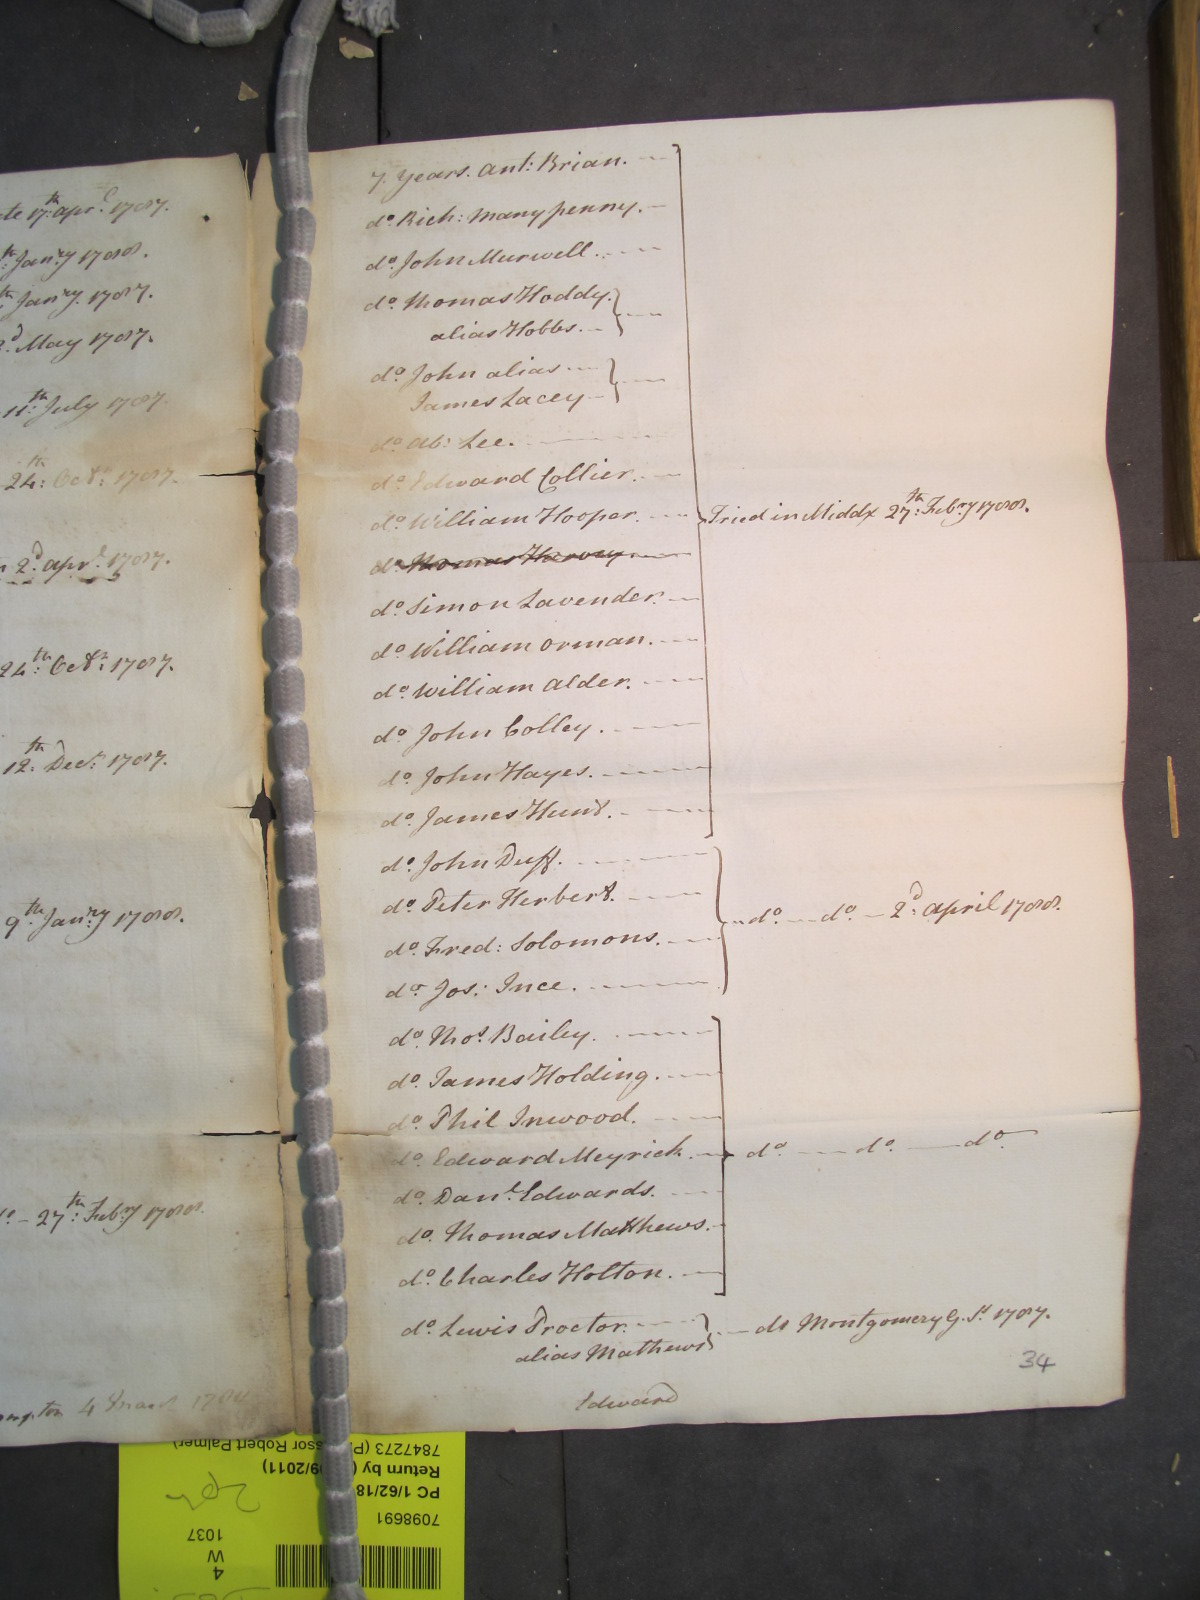 te 17th apr. 1787.
th Jan.ry 1788.
th Jan.ry 1787.
d May 1787.
11th July 1787.
24th Octr. 1787.
2d apr. 1787.
24th Octr. 1787.
12th Decr. 1787.
9th Jan.ry 1788.
do - 27th Feb.ry 1788.
7 Years. Ant: Brian.
do Rich: Manypenny.
do John Murwell.
do Thomas Hoddy.
alias Hobbs.
do John alias
James Lacey
do Ab: Lee.
do Edward Collier.
do William Hooper.
Tried in Middx 27th Feb.ry 1788.
do Thomas Harvey
do Simon Lavender.
do William Orman.
do William Alder.
do John Colley.
do John Hayes.
do James Hunt.
do John Duff.
do Peter Herbert.
do do 2d April 1788.
do Fred: Solomons.
do Jos: Ince.
do Thos. Bailey.
do James Holding.
do Phil Inwood.
do Edward Meyrick. do do do
do Danl. Edwards.
do Thomas Matthews.
do Charles Holton.
do Lewis Proctor.
alias Mathews
do Montgomery G. Sn 1787.
34
Edward
7098691
PC 1/62/18
Return by
09/2011)
7847273
ssor Robert Palmer)
4
W
1037